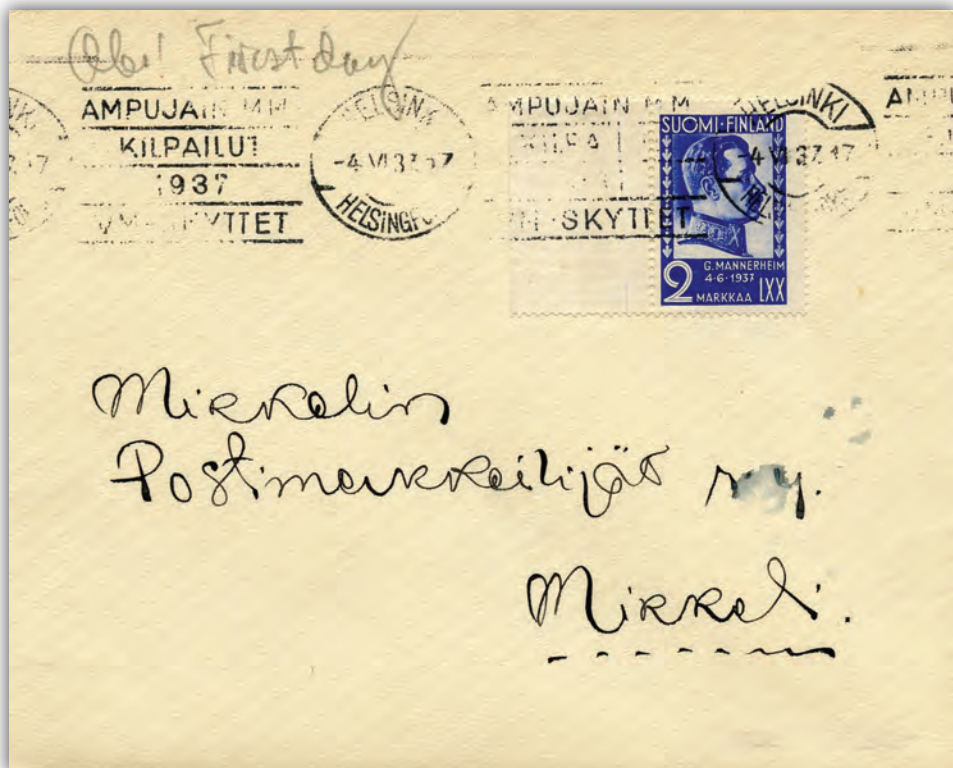 Obs! First day
AMPUJAIN MM
KILPAILUT
1937
VM SKYTTET
HELSINKI
-4.VI.37.17
HELSINGFO
AMPUJAIN MM
KILPA
VM SKYTTET
HELSINKI
-4.VI.37.17
SUOMI-FINLAND
G. MANNERHEIM
4·6·1937
2 MARKKAA LXX
Mikkelin
Postimerkkeilijät r.y.
Mikkeli.